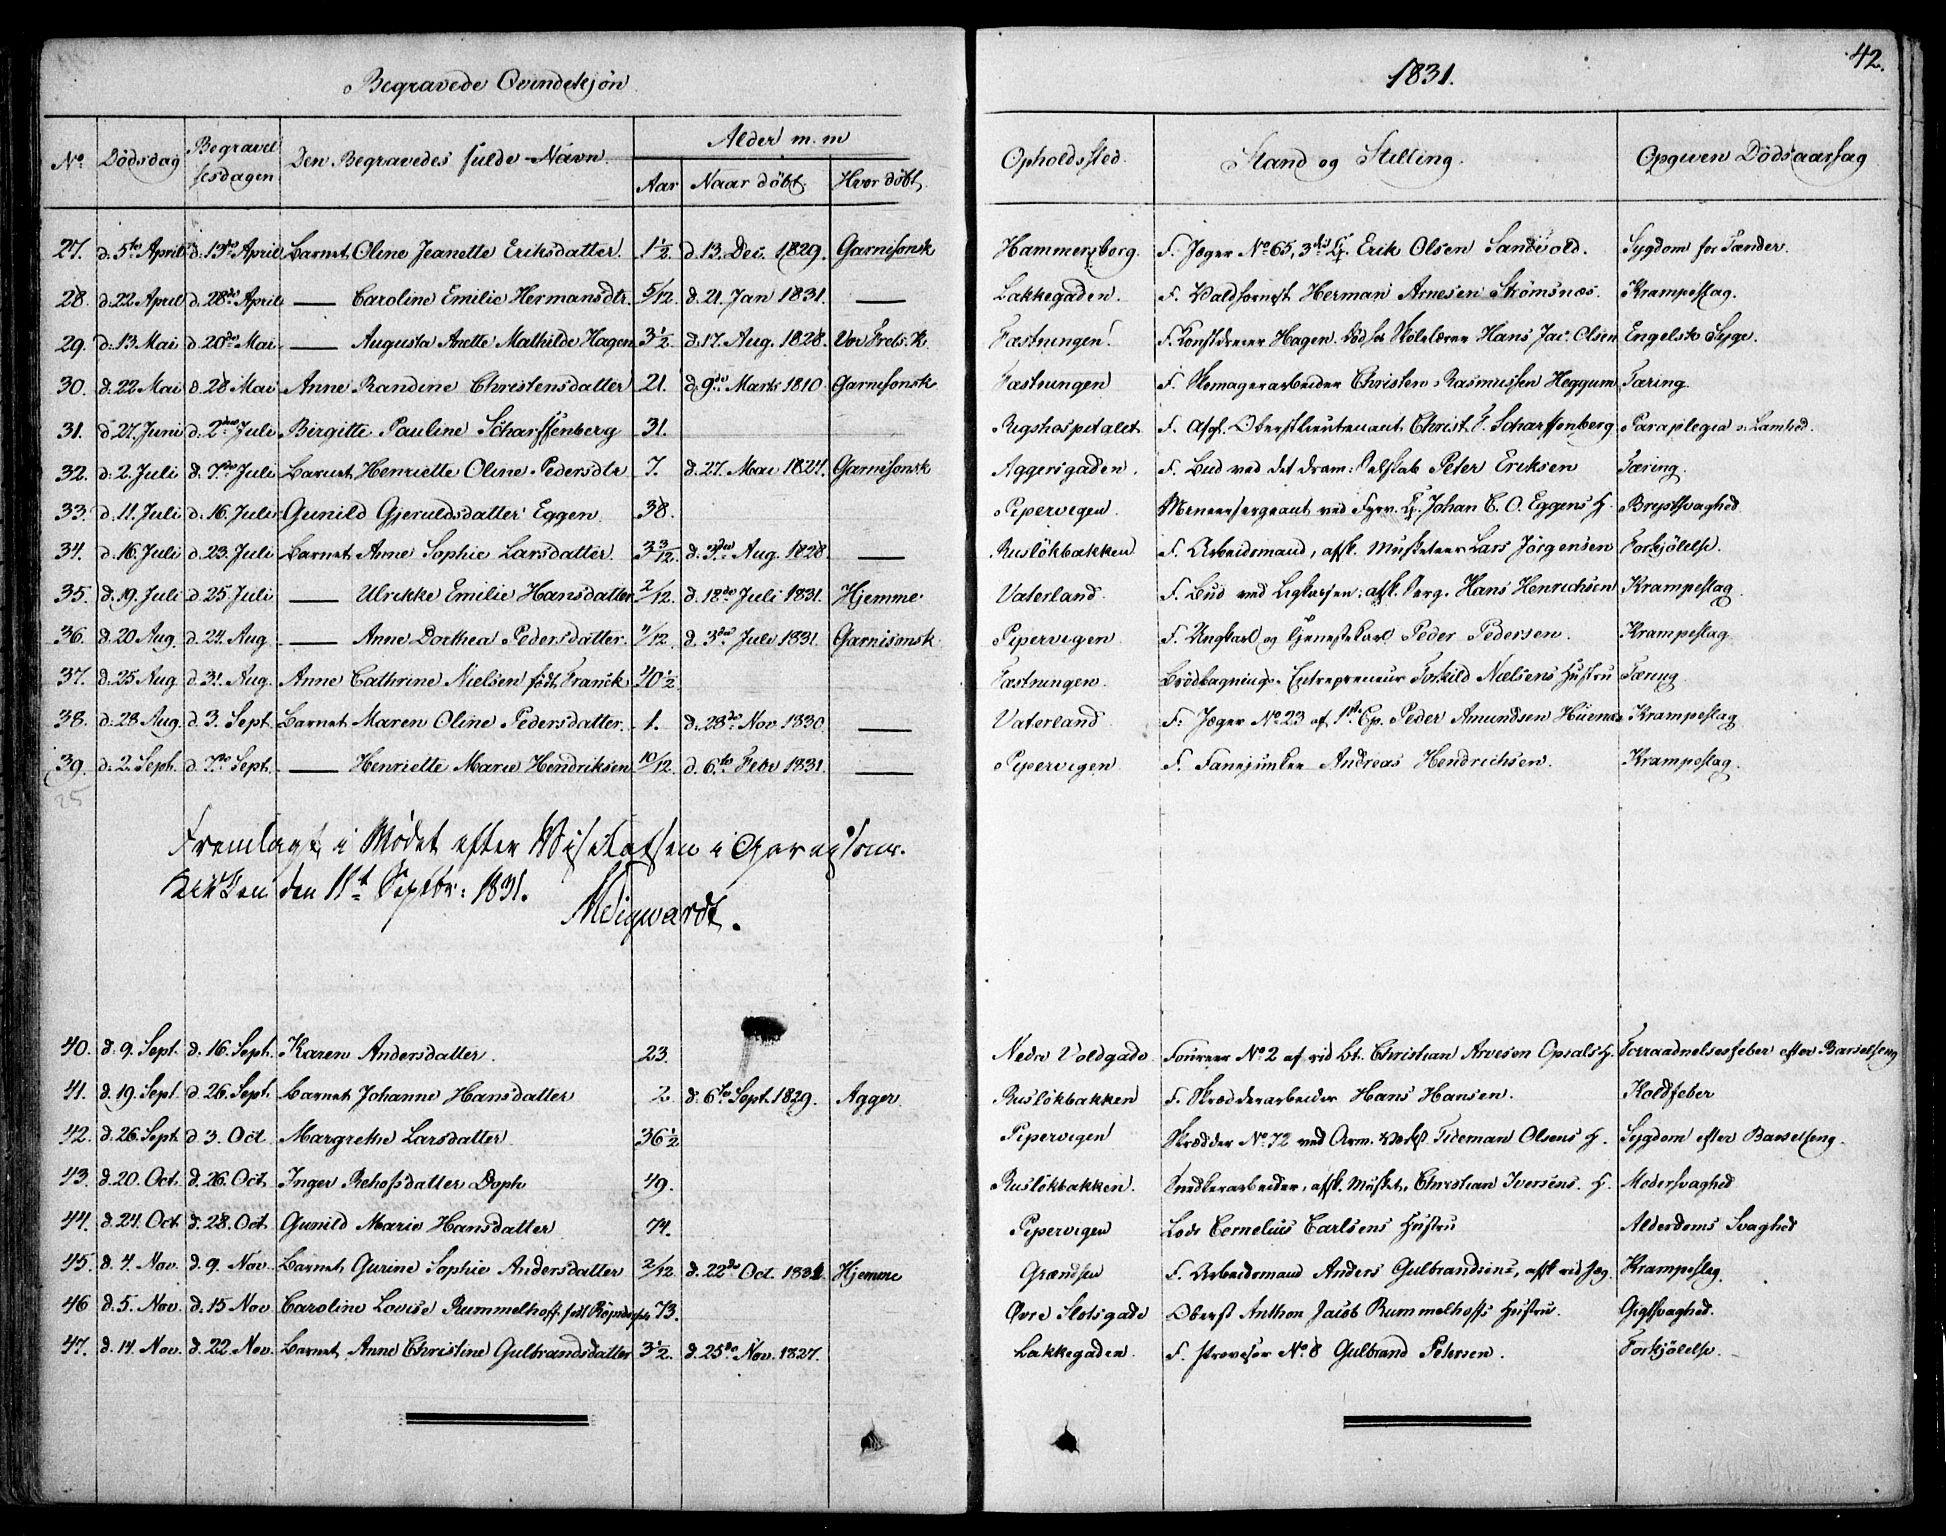 Begravede Qvindekjøn
1831.
42.
No. Dödsdag Begravelsesdagen Den Begravedes fulde Navn. Alder m. m Aar Naar döbt. Hvor döbt. Opholdssted. Stand og Stilling. Opgiven Dödsaarsag
27. d. 5te April d. 13de April Barnet Oline Jeanette Eriksdatter. 1 1/2 d. 13. Dec. 1829. Garnisonsk Hammersborg. F. Jæger No 65, 3die Cp. Erik Olsen Sandvold. Sygdom for Tænder.
28. d. 22 April d. 28de April — Caroline Emilie Hermansdtr. 5/12. d. 21. Jan 1831. — Lakkegaden. F. Herman Arnesen Strömsnæs. Krampeslag.
29. d. 13. Mai d. 20de Mai — Augusta Anette Mathilde Hagen 3 1/2. d. 17. Aug. 1828. Vor Frels. K. Fæstningen. F. Hagen. Hans Jac. Olsen Engelsk Syge.
30. d. 22 Mai d. 28 Mai Anne Randine Christensdatter 21. d. 9de Marts 1810. Garnisonsk Fæstningen F. Skomagerarbeider Christen Rasmussen Heggum Tæring.
31. d. 27. Juni d. 2den Juli Birgitte Pauline Scharffenberg 31. Rigshospitalet F. Afsk. Oberstlieutenant Christ. F. Scharffenberg. Paraplegia Lamhed.
32. d. 2. Juli d. 7de Juli Barnet Henriette Oline Pedersdtr 7. d. 27. Mai 1824. Garnisonsk Aggersgaden. F. Bud ved det dram: Selskab Peter Eriksen Tæring.
33. d. 11. Juli d. 16. Juli Gunild Gjeruldsdatter Eggen. 38. Pipervigen. Mineersergeant ved Cp. Johan C. O. Eggens H. Brystsvaghed
34. d. 16. Juli d. 23. Juli Barnet Anne Sophie Larsdatter. 3 3/12. d. 3die Aug. 1828. — Ruslökbakken F. Arbeidsmand, afsk. Musketeer Lars Jörgensen Forkjölelse.
35. d. 19. Juli d. 25. Juli — Ulrikke Emilie Hansdatter 2/12. d. 18de Juli 1831. Hjemme. Vaterland. F. Bud ved afsk. Serg. Hans Henrichsen Krampeslag.
36. d. 20 Aug. d. 24. Aug — Anne Dorthea Pedersdatter. /12. d. 3die Juli 1831. Garnisonsk. Pipervigen F. Ungkarl og Tjenestekarl Peder Pedersen. Krampeslag.
37. d. 25 Aug. d. 31. Aug. Anne Cathrine Nielsen födt Franck 40 1/2. Fæstningen. Brödbagnings-Entrepreneur Torkild Nielsens Hustru Tæring.
38. d. 28. Aug. d. 3. Sept. Barnet Maren Oline Pedersdatter. 1. d. 28de Nov. 1830. — Vaterland F. Jæger No. 23 af 1ste Cp. Peder Amundsen Krampeslag
39. d. 2. Sept. d. 7de Sept. — Henriette Marie Hendriksen 10/12. d. 6te Febr 1831. — Pipervigen F. Fanejunker Andreas Hendrichsen. Krampeslag.
25
Fremlagt i Mødet efter Visitatsen i Garnisons-
Kirken den 11te Septbr: 1831.
40. d. 9. Sept. d. 16. Sept. Karen Andersdatter. 23. Nedre Voldgade Foureer No 2 af rid Bt. Christian Arvesen Opsals H. Forraadnelsesfeber efter Barselseng
41. d. 19. Sept d. 26. Sept. Barnet Johanne Hansdatter 2 d. 6te Sept. 1829. Agger. Ruslökbakken F. Skrædderarbeider Hans Hansen. Koldfeber
42. d. 26. Sept. d. 3. Oct. Margrethe Larsdatter. 36 1/2 Pipervigen Skrædder No. 72 ved Arm. Tideman Olsens H. Sygdom efter Barselseng.
43. d. 20. Oct. d. 26. Oct. Inger 49. Ruslökbakken. Snedkerarbeider, afsk. Musket. Christian Iversens. H. Modersvaghed
44. d. 24. Oct. d. 28. Oct. Gunild Marie Hansdatter 74. Pipervigen Lods Cornelius Carlsens Hustru Alderdoms Svaghed
45. d. 4. Nov. d. 9. Nov. Barnet Gurine Sophie Andersdatter 2/12 d. 22de Oct. 1831. Hjemme Grændsen F. Arbeidsmand Anders Gulbrandsens, afsk. rid. Jæg. Krampeslag
46 d. 5. Nov. d. 15 Nov Caroline Lovise Rummelhoff, födt 73. Övre Slotsgade Oberst Anthon Jacob Rummelhoffs Hustru. Gigtsvaghed.
47. d. 14. Nov. d. 22. Nov. Barnet Anne Christine Gulbrandsdatter 3 1/2. d. 25de Nov. 1827. Lakkegaden. F. No 8 Gulbrand Petersen. Forkjölelse.